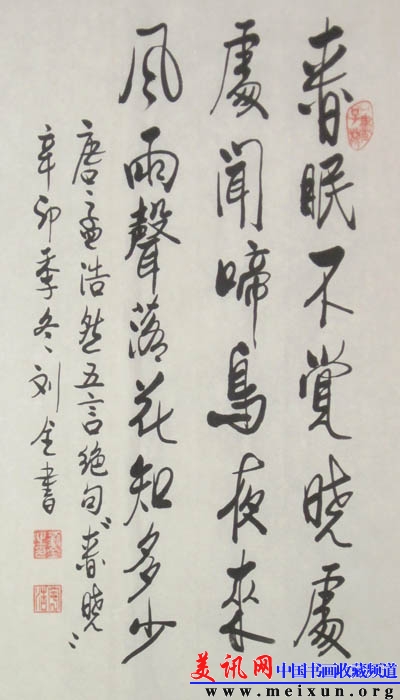 春眠不覺曉處
處聞啼鳥夜來
風雨聲落花知多少
唐孟浩然五言絶句〝春曉〞
辛卯季冬刘全書
美讯网 中国书画收藏频道
www.meixun.org